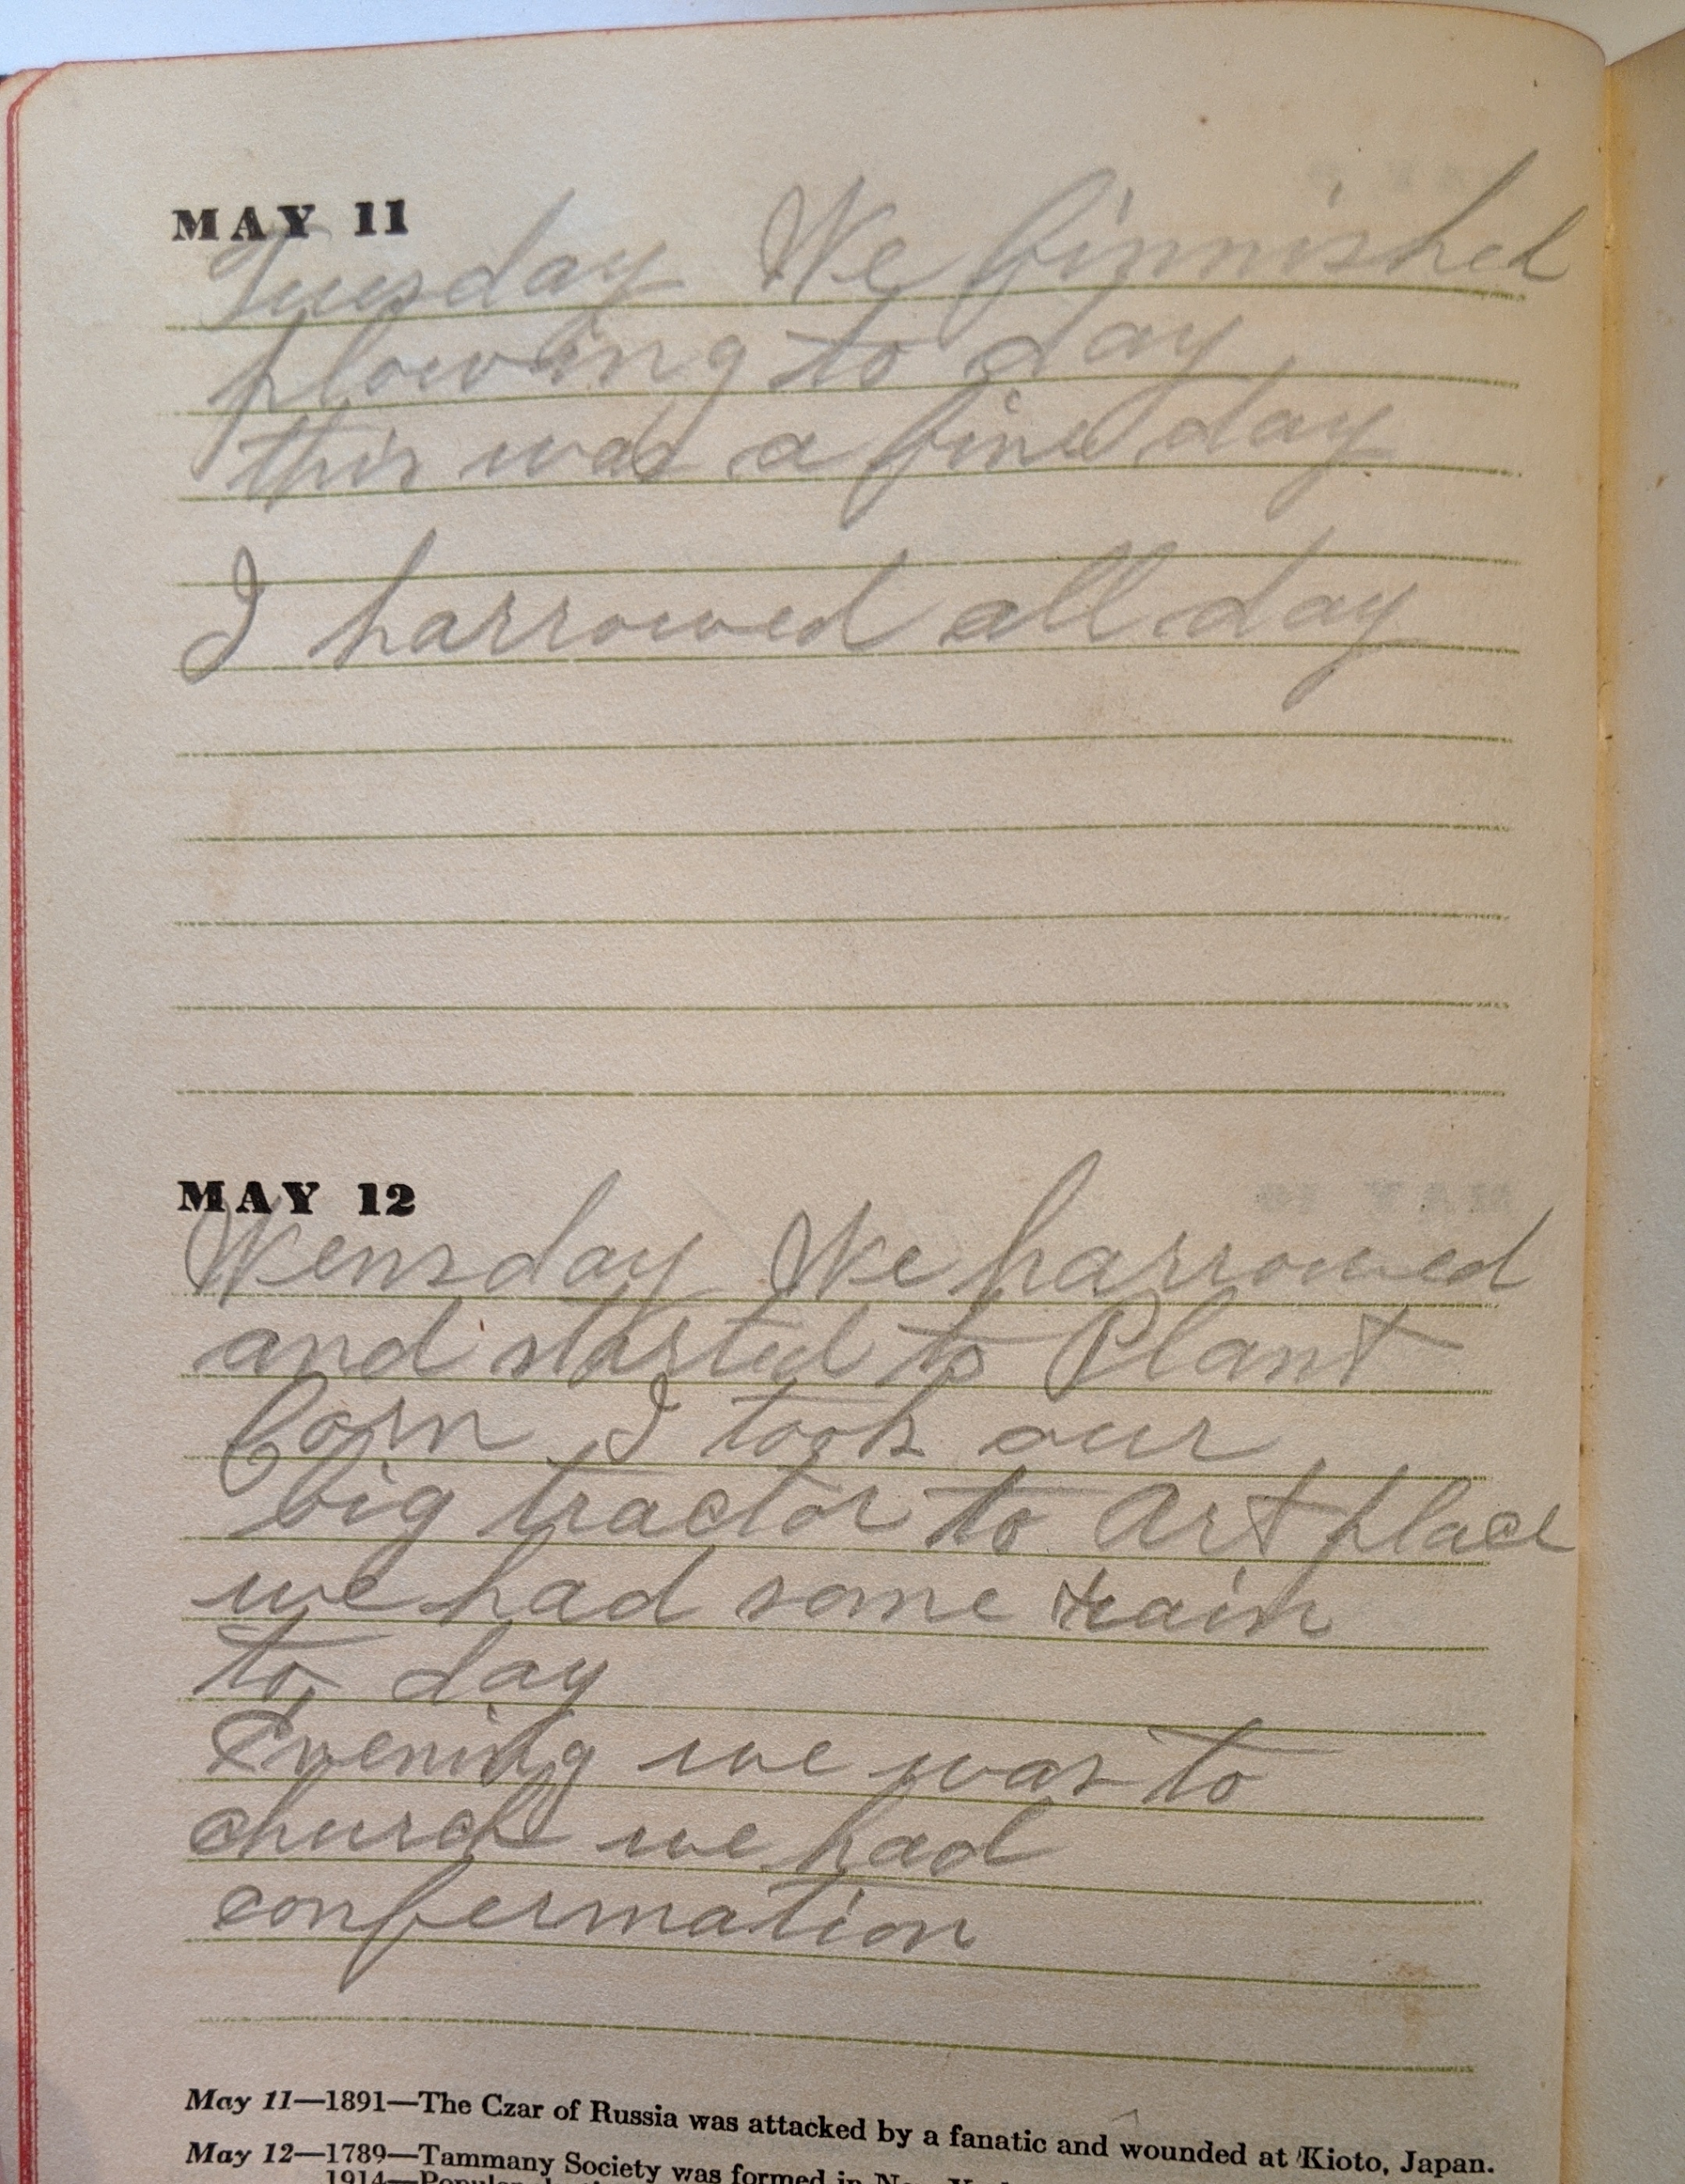 MAY 11
Tuesday We finnished
plowing to day
this was a fine day
I harrowed all day
MAY 12
Wensday We harrowed
and started to Plant
Corn I took our
big tractor to Art place
we had some rain
to day
Evening we was to
church we had
confermation
May 11—1891—The Czar of Russia was attacked by a fanatic and wounded at Kioto, Japan.
May 12—1789—Tammany Society was formed in New
1914—Popular